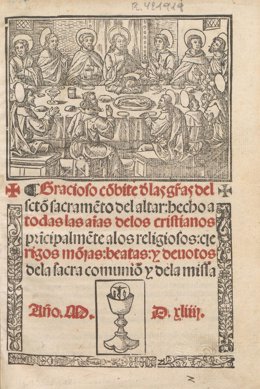 R. 481919
Gracioso cõbite ðlas grãs del
sctõ sacramẽto del altar: hecho a
todas las aĩas delos cristianos
pricipalmẽte alos religiosos: cle
rigos mõjas: beatas: y devotos
dela sacra comuniõ y dela missa
Año. M. D. xliiij.